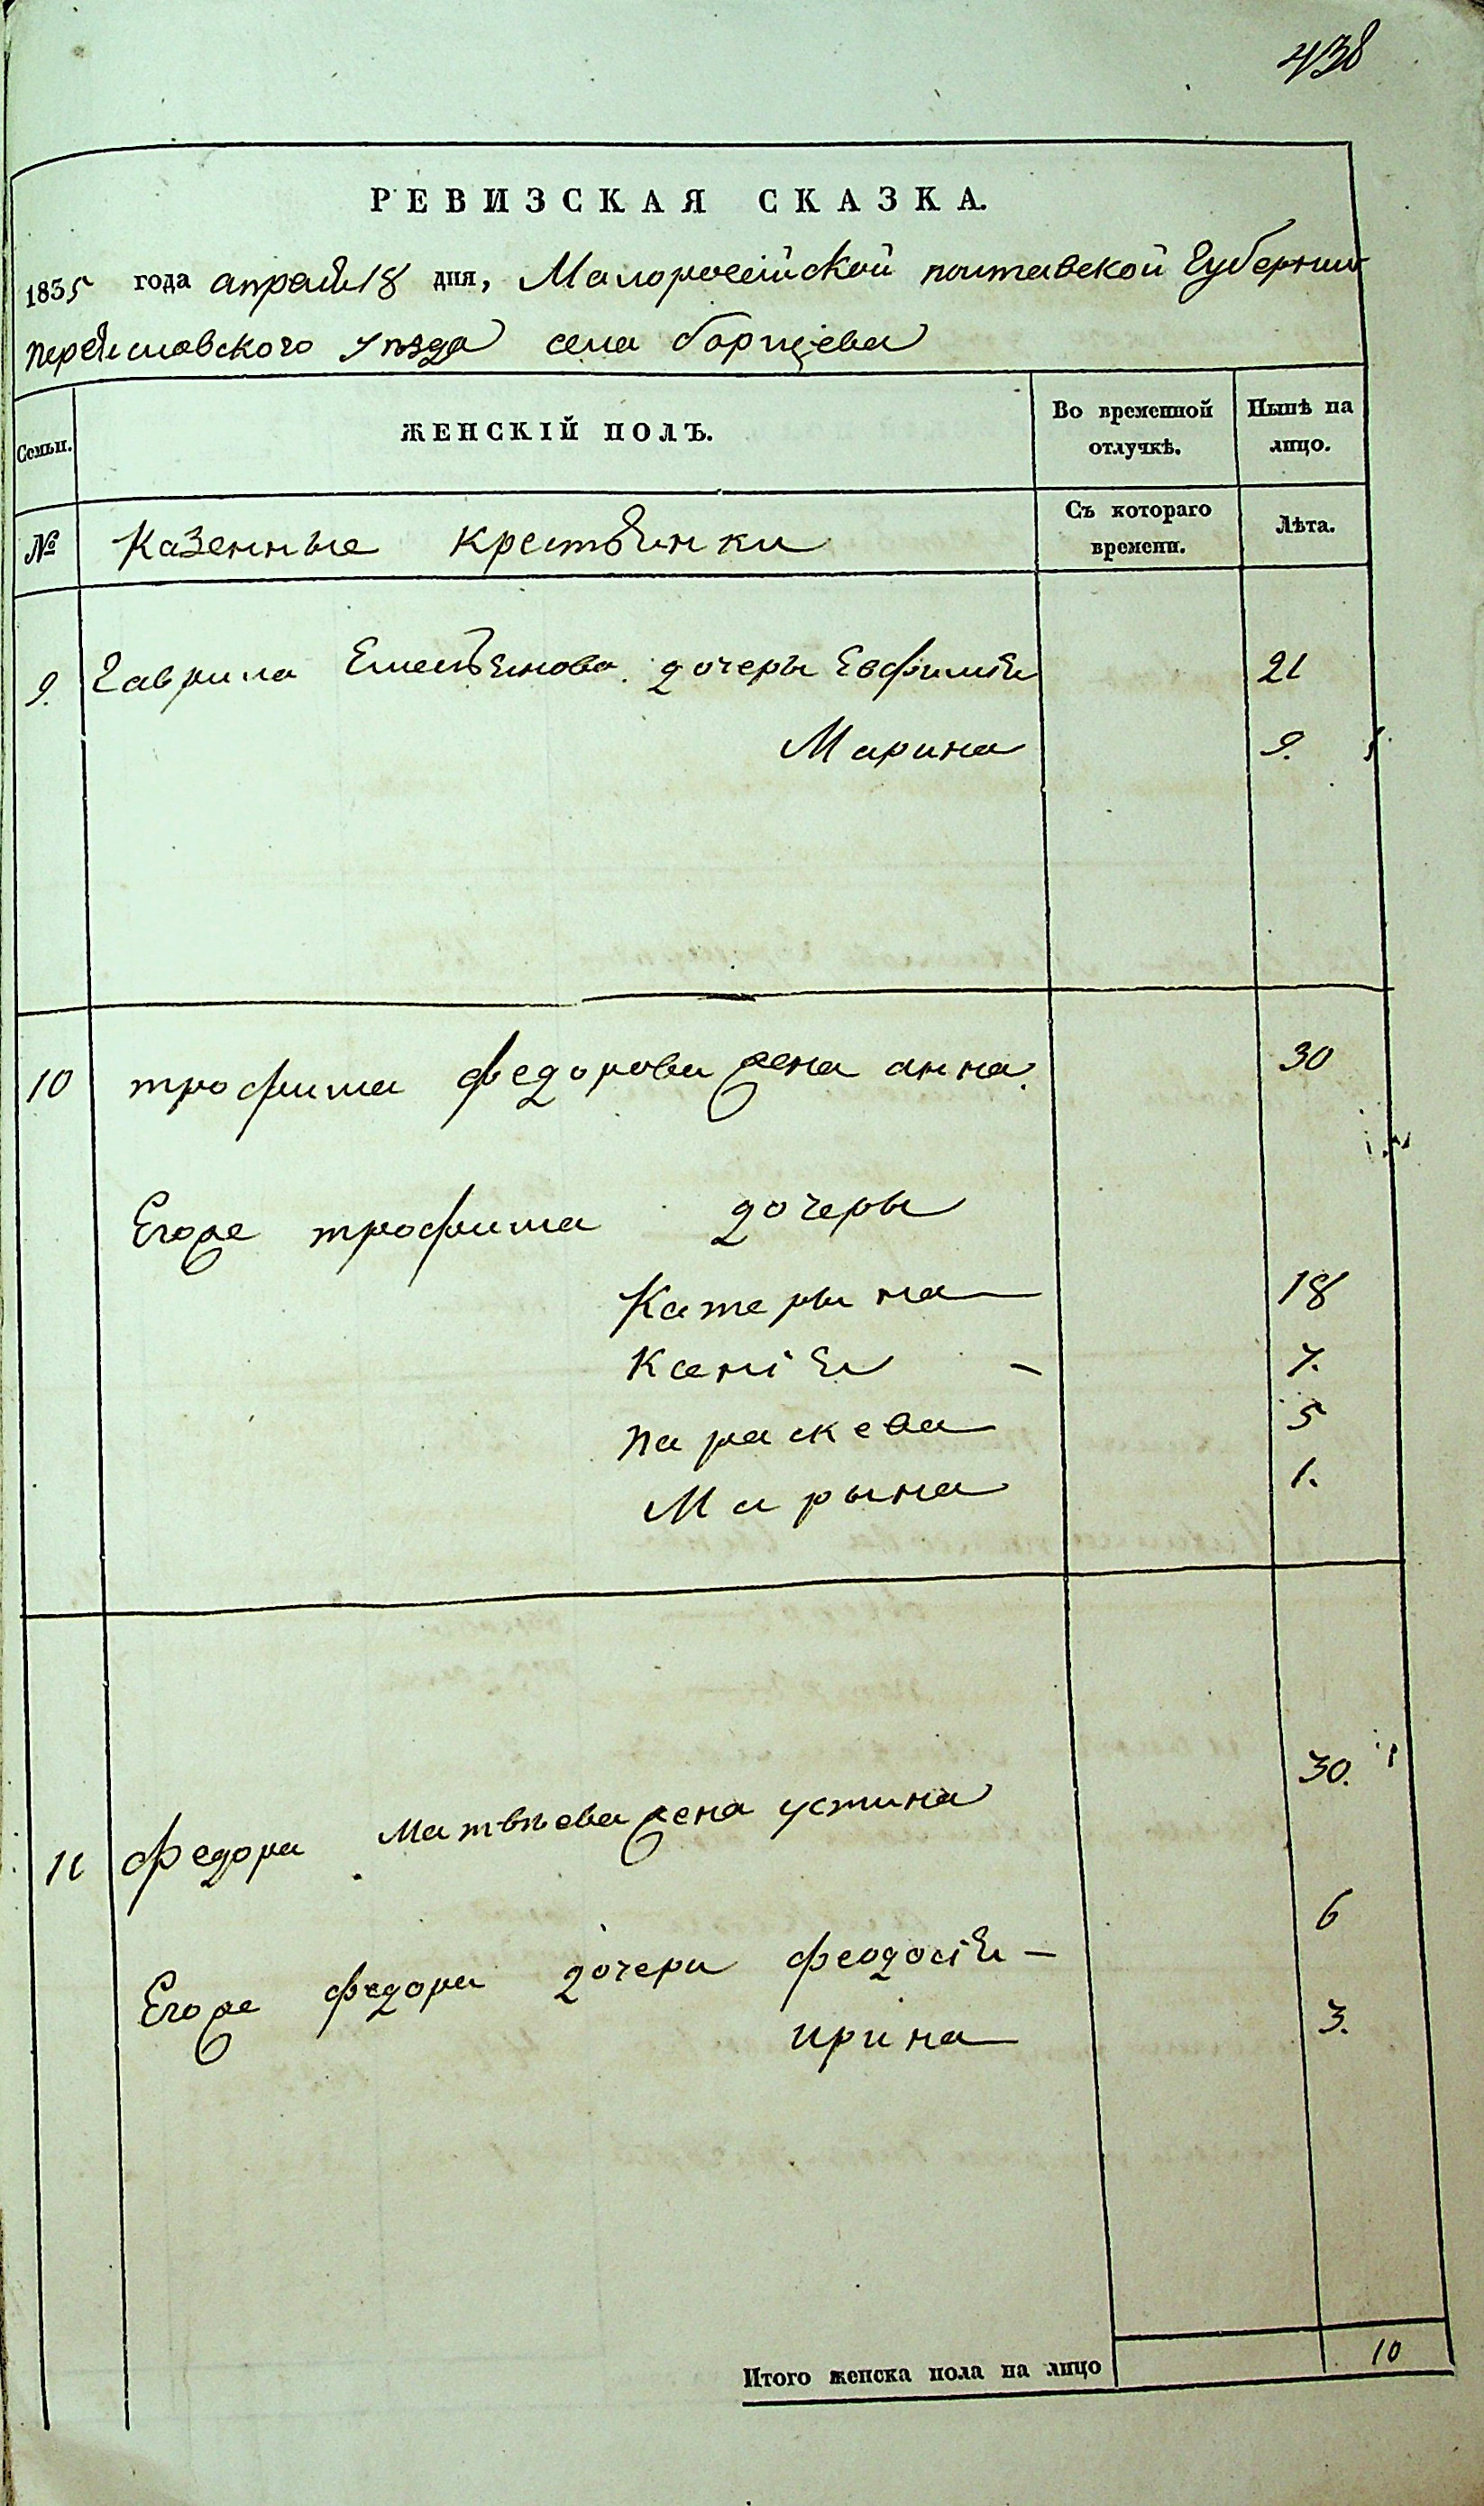 438
РЕВИЗСКАЯ СКАЗКА.
1835 года апреля 18 дня, Малоросійской полтавской Губерніи
переяславского уѣзда села борщева
Семьи. ЖЕНСКІЙ ПОЛЪ. Во временной отлучкѣ. Нынѣ на лицо.
№ Казенные крестянки Съ котораго времени. Лѣта.
9. Гаврила Емельянова дочеры Евфимія 21
Марина 9.
10 трофима федорова жена анна 30
Егоже трофима дочеры
Катерына 18
Ксенія 7.
параскева 5
Марына 1.
11 федора Матвѣева жена устина 30.
Егоже федора дочери феодосія 6
ирина 3.
Итого женска пола на лицо 10